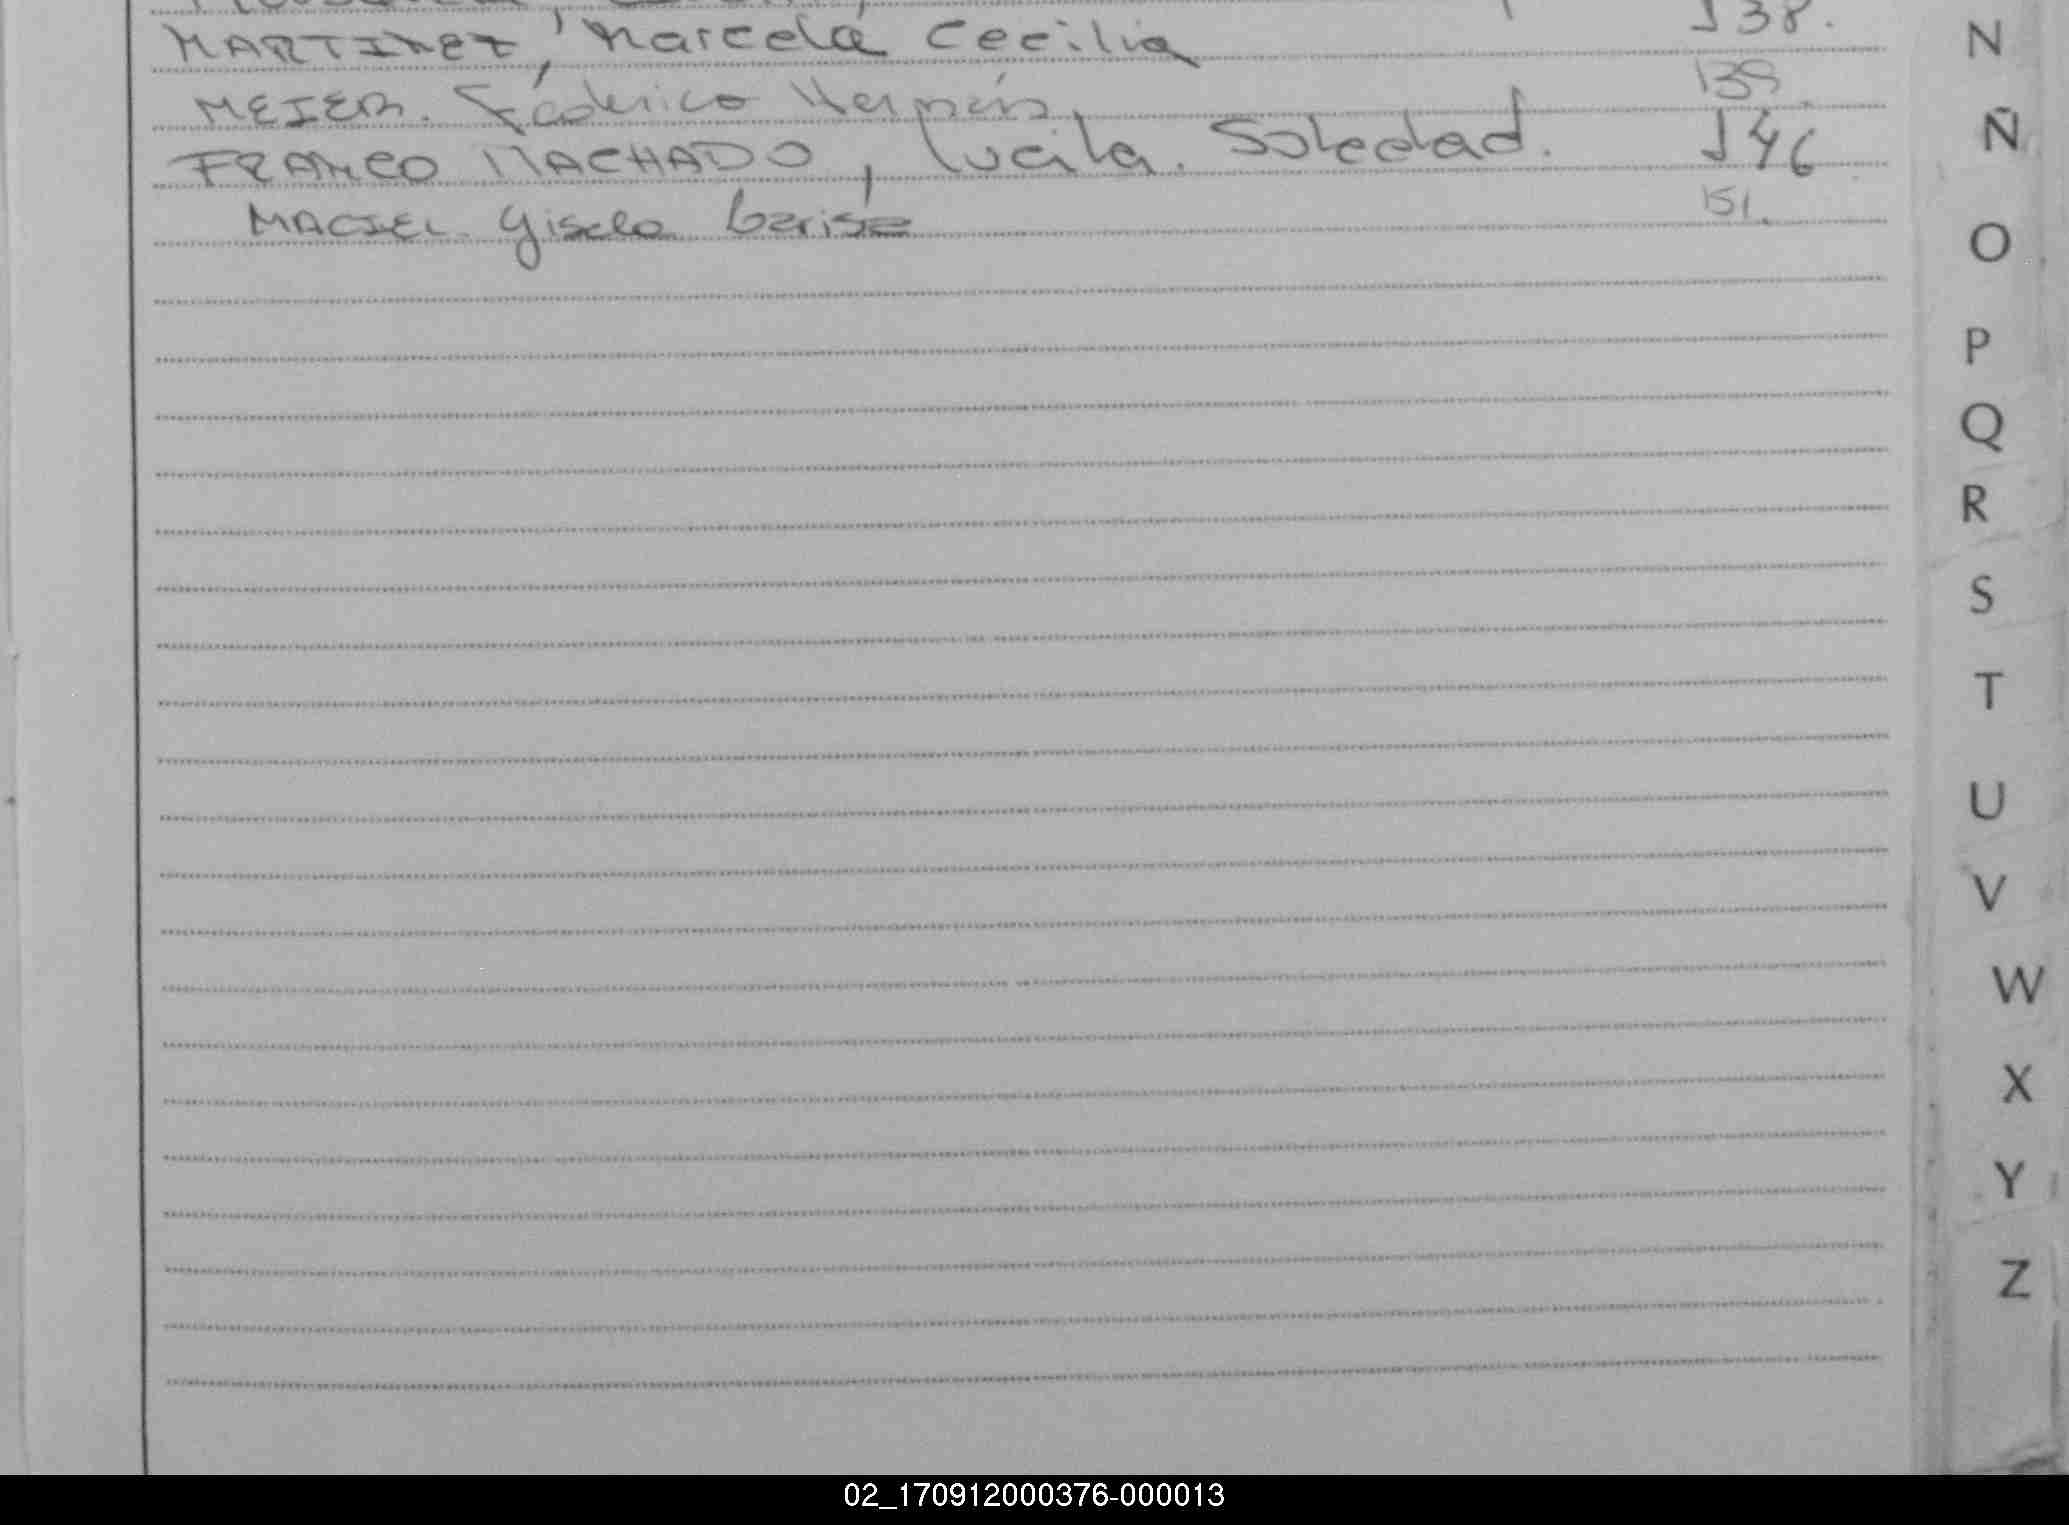 MARTINEZ, Marcela Cecilia 138.
MEIER. Federico Hernán 139.
FRANCO MACHADO, Lucila. Soledad. 146
MACIEL Gisela 151.
N
Ñ
O
P
Q
R
S
T
U
V
W
X
Y
Z
02_170912000376-000013